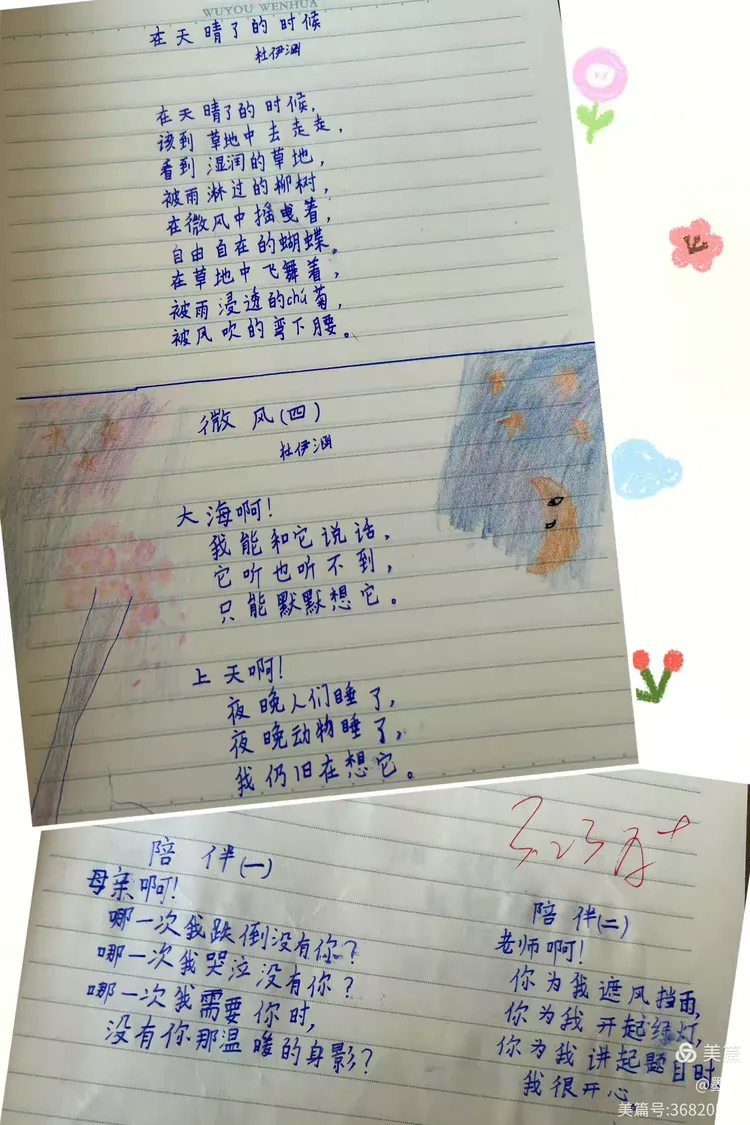 WUYOU WENHUA
在天晴了的时候
杜伊涵
在天晴了的时候，
该到草地中去走走，
看到湿润的草地，
被雨淋过的柳树，
在微风中摇曳着，
自由自在的蝴蝶。
在草地中飞舞着，
被雨浸透的chú菊，
被风吹的弯下腰。
微风(四)
杜伊涵
大海啊！
我能和它说话，
它听也听不到，
只能默默想它。
上天啊！
夜晚人们睡了，
夜晚动物睡了，
我仍旧在想它。
陪伴(一)
母亲啊！
哪一次我跌倒没有你？
哪一次我哭泣没有你？
哪一次我需要你时，
没有你那温暖的身影？
陪伴(二)
老师啊！
你为我遮风挡雨，
你为我开起绿灯，
你为我讲起题目时
我很开心。
美篇
美篇号:36820